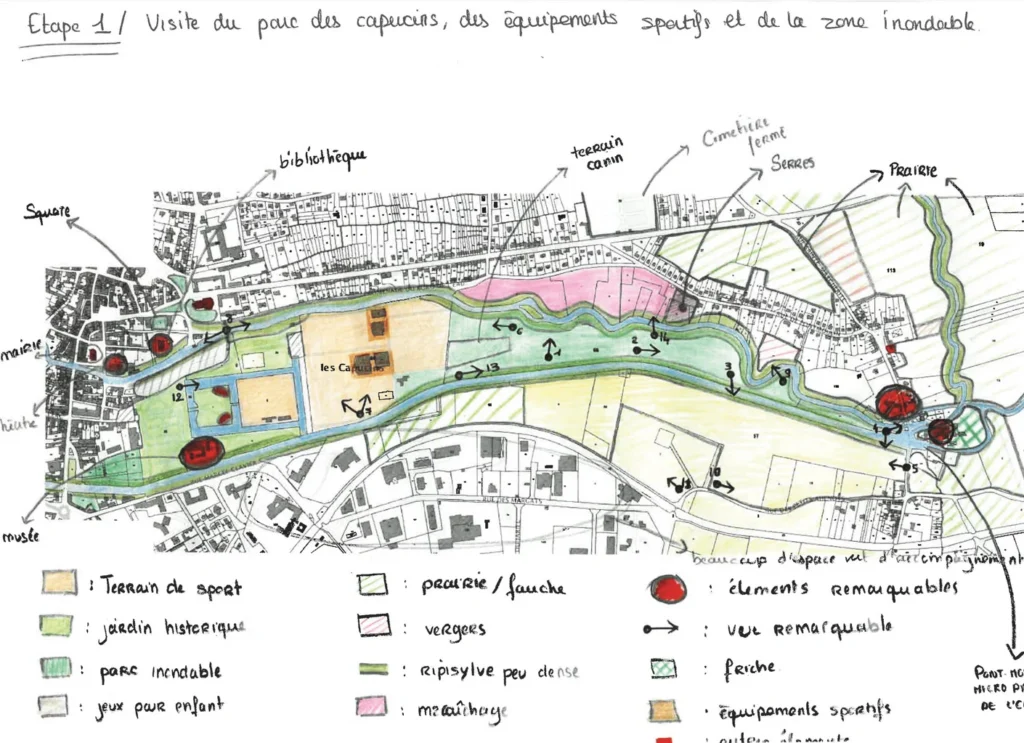 Etape 1 / Visite du parc des capucins, des équipements sportifs et de la zone inondable.
bibliothèque
terrain canin
Cimetière fermé
SERRES
PRAIRIE
Square
mairie
musée
les Capucins
1
2
3
5
6
7
9
12
13
14
10
RUE DES MARCHAIS
beaucoup d'espace vert d'accompagnement
: TERRAIN de sport
: jardin historique
: parc inondable
: jeux pour enfant
: prairie/fauche
: vergers
: Ripisylve peu dense
: maraîchage
: élements remarquables
: vue remarquable
: friche
: équipements sportifs
MICRO